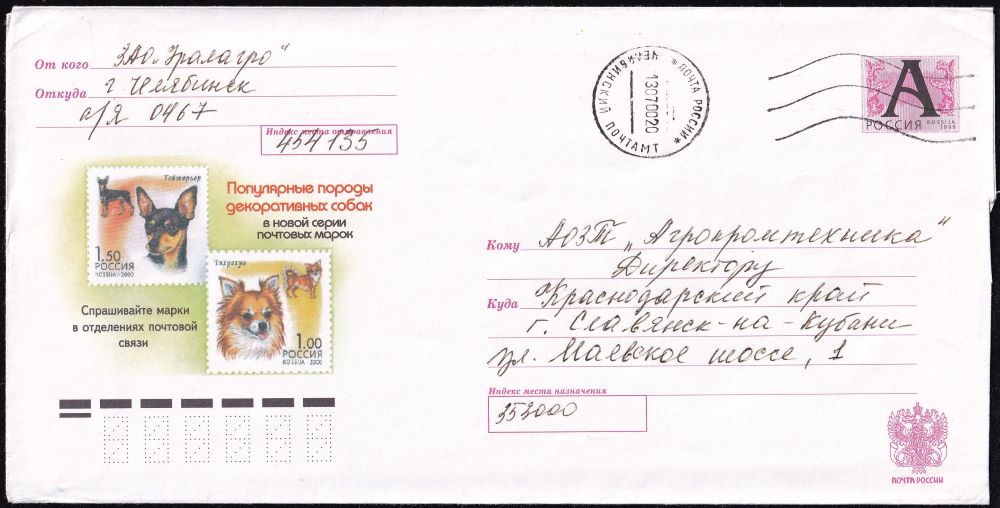 От кого ЗАО „Уралагро"
Откуда г. Челябинск
а/я 0467
Индекс места отправления
454135
Тойтерьер
1.50
РОССИЯ
ROSSIJA · 2000
Популярные породы
декоративных собак
в новой серии
почтовых марок
Чихуахуа
1.00
РОССИЯ
ROSSIJA 2000
Спрашивайте марки
в отделениях почтовой
связи
* ПОЧТА РОССИИ *
ЧЕЛЯБИНСКИЙ ПОЧТАМТ
13070020
А
РОССИЯ ROSSIJA
1999
Кому АОЗТ „Агропромтехника"
Директору
Куда Краснодарский край
г. Славянск-на-Кубани
ул. Маевское шоссе, 1
Индекс места назначения
353000
ПОЧТА РОССИИ